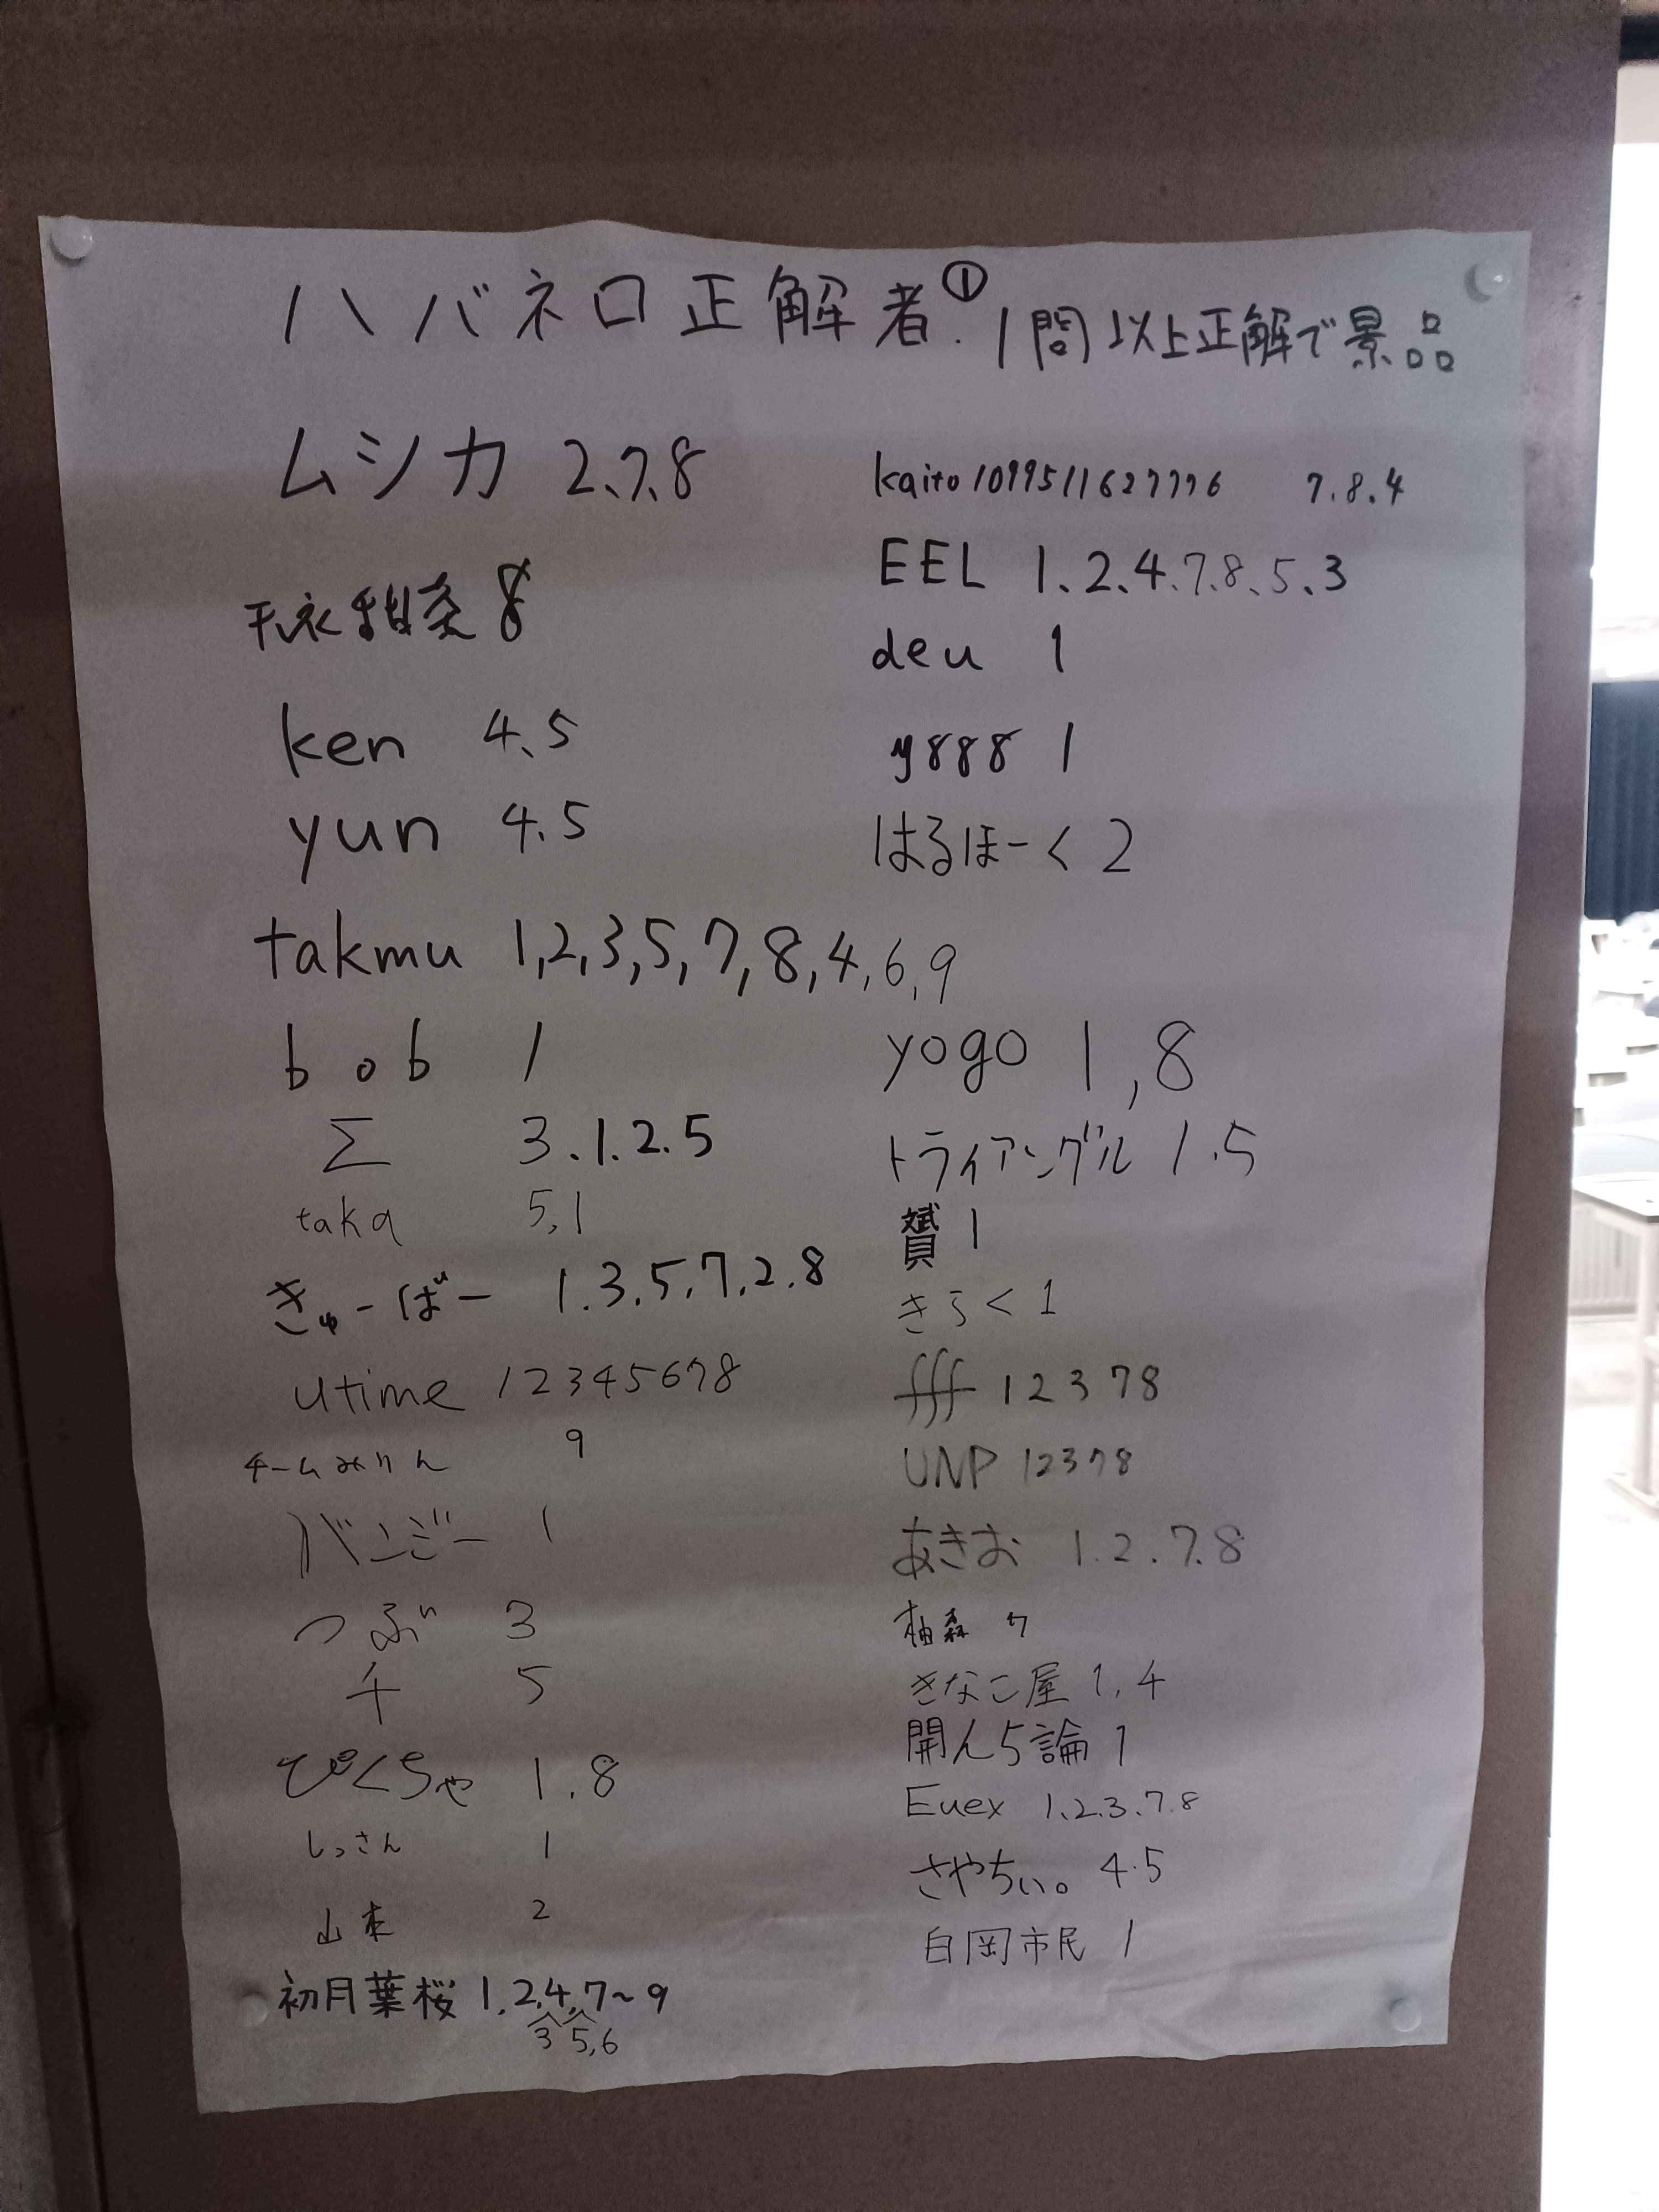 ハバネロ正解者① 1問以上正解で景品
ムシカ 2、7、8
8
ken 4、5
yun 4、5
takmu 1,2,3,5,7,8,4,6,9
bob 1
Σ 3.1.2.5
taka 5,1
きゅーばー 1.3.5.7.2.8
utime 12345678
9
チームみりん
バンジー 1
つぶ 3
千 5
ぴくちゃ 1.8
しっさん 1
山本 2
初月葉桜 1.2,4,7~9
3 5,6
kaito1099511627776 7.8.4
EEL 1.2.4.7.8、5、3
deu 1
y888 1
はるほーく 2
yogo 1,8
トライアングル 1.5
贇 1
きらく 1
fff 12378
UNP 12378
あきお 1.2.7.8
柚森 7
きなこ屋 1,4
開ん5論 1
Euex 1.2.3.7.8
さやちぃ。 4.5
白岡市民 1